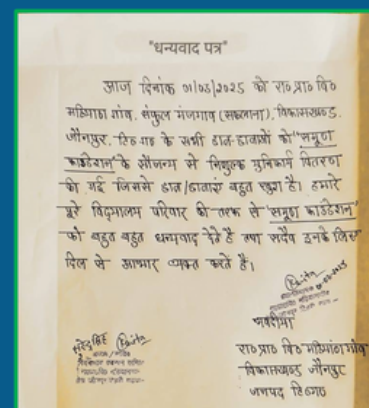 "धन्यवाद पत्र"
आज दिनांक 01/05/2025 को रा० प्रा० वि०
गांव, संकुल मंजगांव (सकलाना), विकासखण्ड.
जौनपुर, टि० ग० के सभी छात्र-छात्राओं को "समूण
फाउंडेशन" के सौजन्य से निशुल्क युनिफार्म वितरण
की गई जिससे छात्र/छात्राएं बहुत खुश है। हमारे
पूरे विद्यालय परिवार की तरफ से "समूण फाउंडेशन"
को बहुत बहुत धन्यवाद देते है तथा सदैव उनके लिए
दिल से आभार व्यक्त करते है।
भवदीया
रा० प्रा० वि० गांव
विकासखण्ड जौनपुर
जनपद टि० ग०